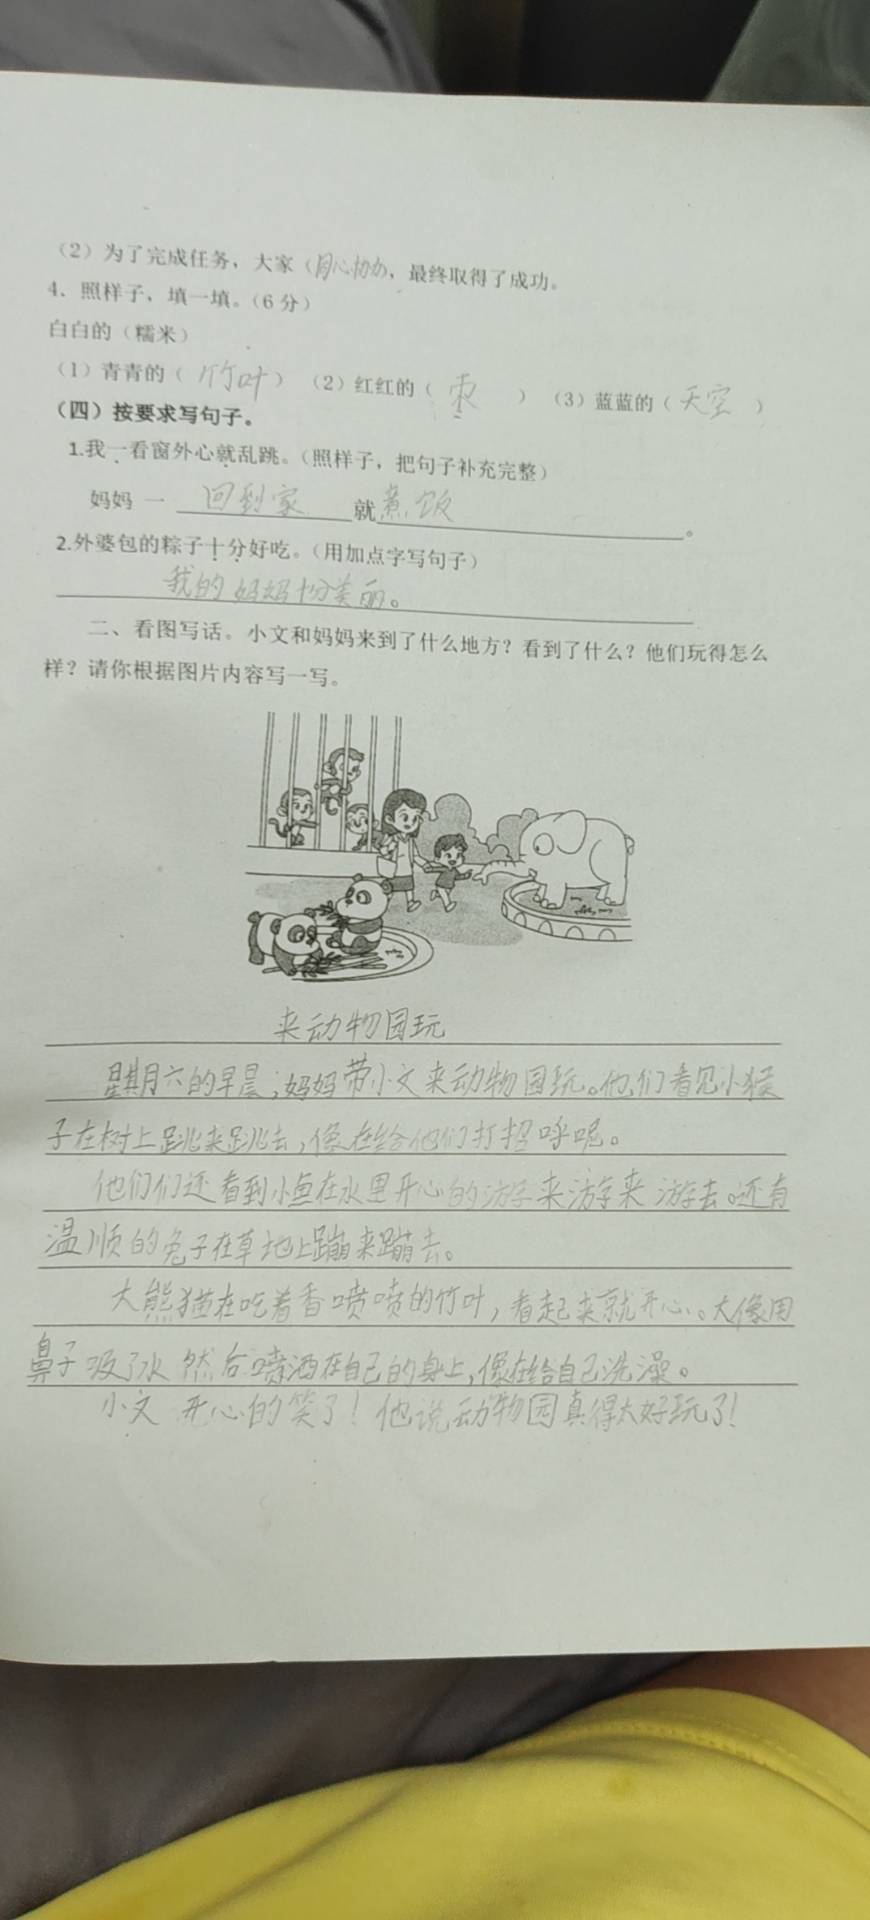 （2）为了完成任务，大家（同心协力，最终取得了成功。
4、照样子，填一填。（6分）
白白的（糯米）
（1）青青的（竹叶）（2）红红的（枣）（3）蓝蓝的（天空）
（四）按要求写句子。
1.我一看窗外心就乱跳。（照样子，把句子补充完整）
妈妈 一 回到家 就煮饭。
2.外婆包的粽子十分好吃。（用加点字写句子）
我的妈妈十分美丽。
二、看图写话。小文和妈妈来到了什么地方？看到了什么？他们玩得怎么
样？请你根据图片内容写一写。
来动物园玩
星期六的早晨，妈妈带小文来动物园玩。他们看见小猴
子在树上跳来跳去，像在给他们打招呼呢。
他们们还看到小鱼在水里开心的游来游来游去。还有
温顺的兔子在草地上蹦来蹦去。
大熊猫在吃着香喷喷的竹叶，看起来就开心。大像用
鼻子吸了水然后喷洒在自己的身上，像在给自己洗澡。
小文开心的笑了！他说动物园真得太好玩了！